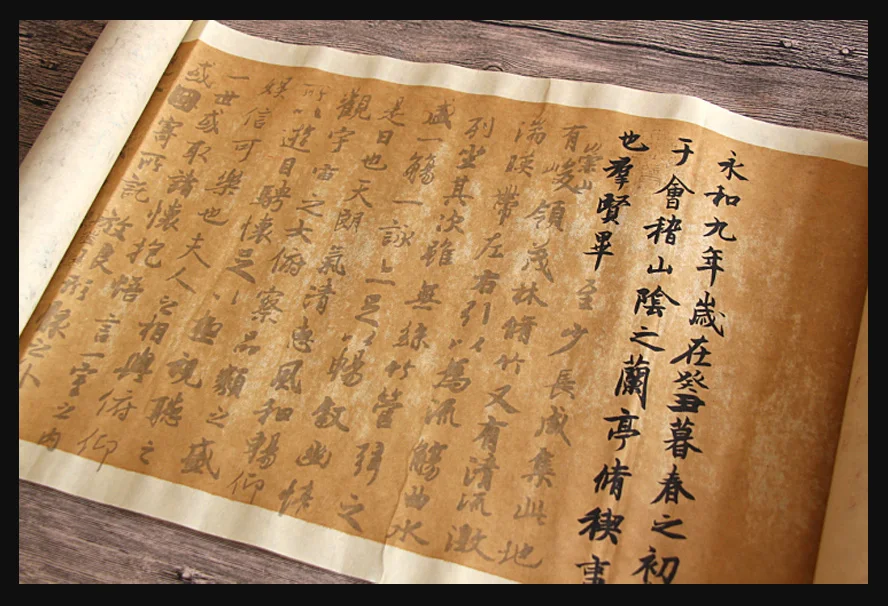 永和九年歲在癸丑暮春之初
于會稽山陰之蘭亭脩稧事
也羣賢畢至少長咸集此地
有崇山峻領茂林脩竹又有清流激
湍暎帶左右引以為流觴曲水
列坐其次雖無絲竹管弦之
盛一觴一詠亦足以暢敘幽情
是日也天朗氣清惠風和暢仰
觀宇宙之大俯察品類之盛
所以遊目騁懷足以極視聽之
娛信可樂也夫人之相與俯仰
一世或取諸懷抱悟言一室之內
或因寄所託放浪形骸之外